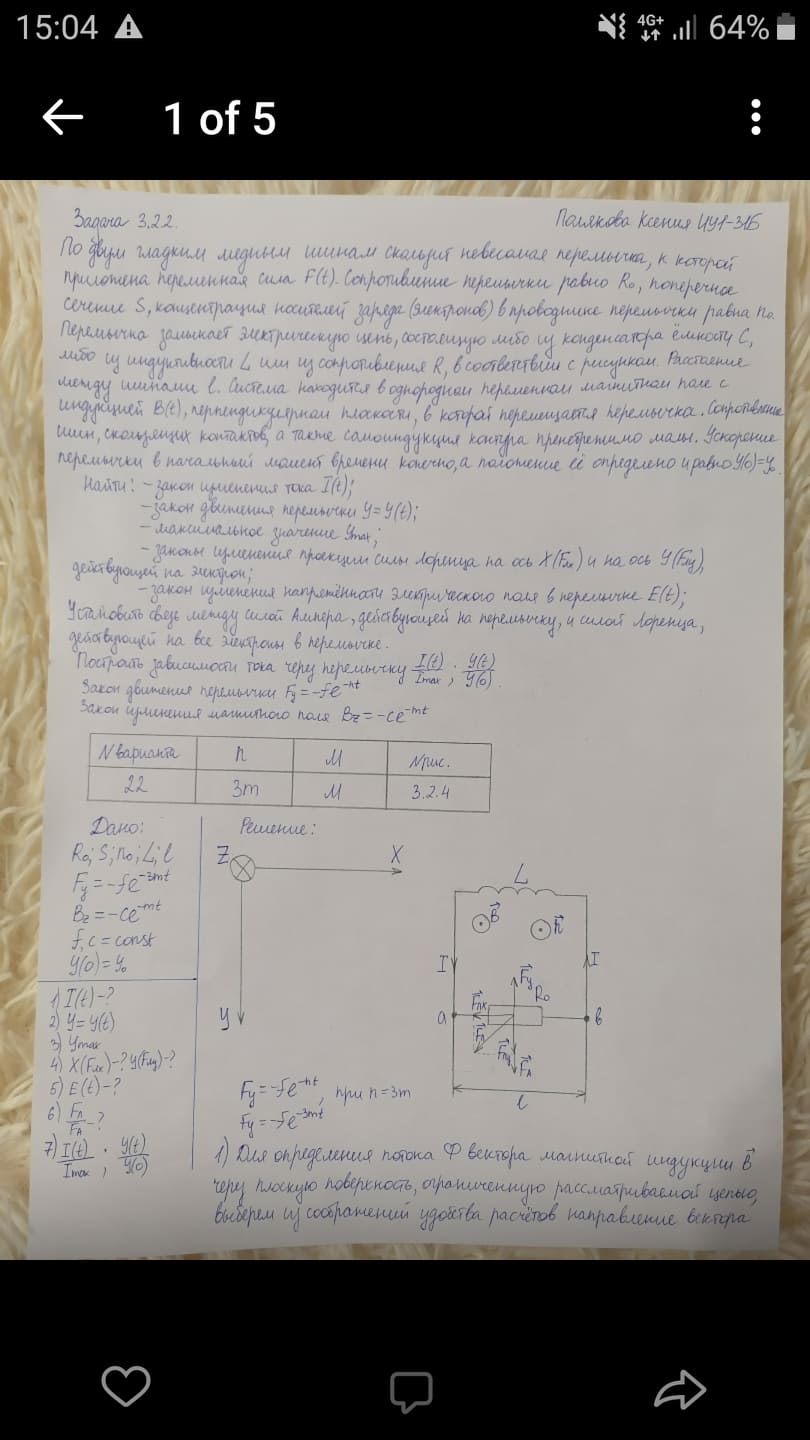 15:04
4G+
64%
1 of 5
Задача 3.22.
Полякова Ксения ИУ1-31Б
По двум гладким медным шинам скользит невесомая перемычка, к которой
приложена переменная сила F(t). Сопротивление перемычки равно R₀, поперечное
сечение S, концентрация носителей заряда (электронов) в проводнике перемычки равна n₀.
Перемычка замыкает электрическую цепь, состоящую либо из конденсатора ёмкости C,
либо из индуктивности L или из сопротивления R, в соответствии с рисунком. Расстояние
между шинами l. Система находится в однородном переменном магнитном поле с
индукцией B(t), перпендикулярном плоскости, в которой перемещается перемычка. Сопротивление
шин, скользящих контактов, а также самоиндукция контура пренебрежимо малы. Ускорение
перемычки в начальный момент времени конечно, а положение её определено и равно y(0)=y₀.
Найти: - закон изменения тока I(t);
- закон движения перемычки y=y(t);
- максимальное значение Ymax;
- законы изменения проекции силы Лоренца на ось X(Fлx) и на ось Y(Fлy),
действующей на электрон;
- закон изменения напряжённости электрического поля в перемычке E(t);
Установить связь между силой Ампера, действующей на перемычку, и силой Лоренца,
действующей на все электроны в перемычке.
Построить зависимости тока через перемычку I(t)/Imax ; y(t)/y(0).
Закон движения перемычки Fy=-fe^-nt
Закон изменения магнитного поля Bz=-ce^-mt
N варианта n M Nрис.
22 3m M 3.2.4
Дано:
R₀; S; n₀; L; l
Fy=-fe^-3mt
Bz=-ce^-mt
f, c = const
y(0)=y₀
1) I(t)-?
2) y=y(t)
3) Ymax
4) X(Fлx)-? Y(Fлy)-?
5) E(t)-?
6) Fл/FA -?
7) I(t)/Imax ; y(t)/y(0)
Решение:
Z X
Y
L
B n
I I
Fy
Fлx R₀
a b
Fл
Fлy FA
l
Fy=-fe^-nt, при n=3m
Fy=-fe^-3mt
1) Для определения потока Ф вектора магнитной индукции B
через плоскую поверхность, ограниченную рассматриваемой цепью,
выберем из соображений удобства расчётов направление вектора